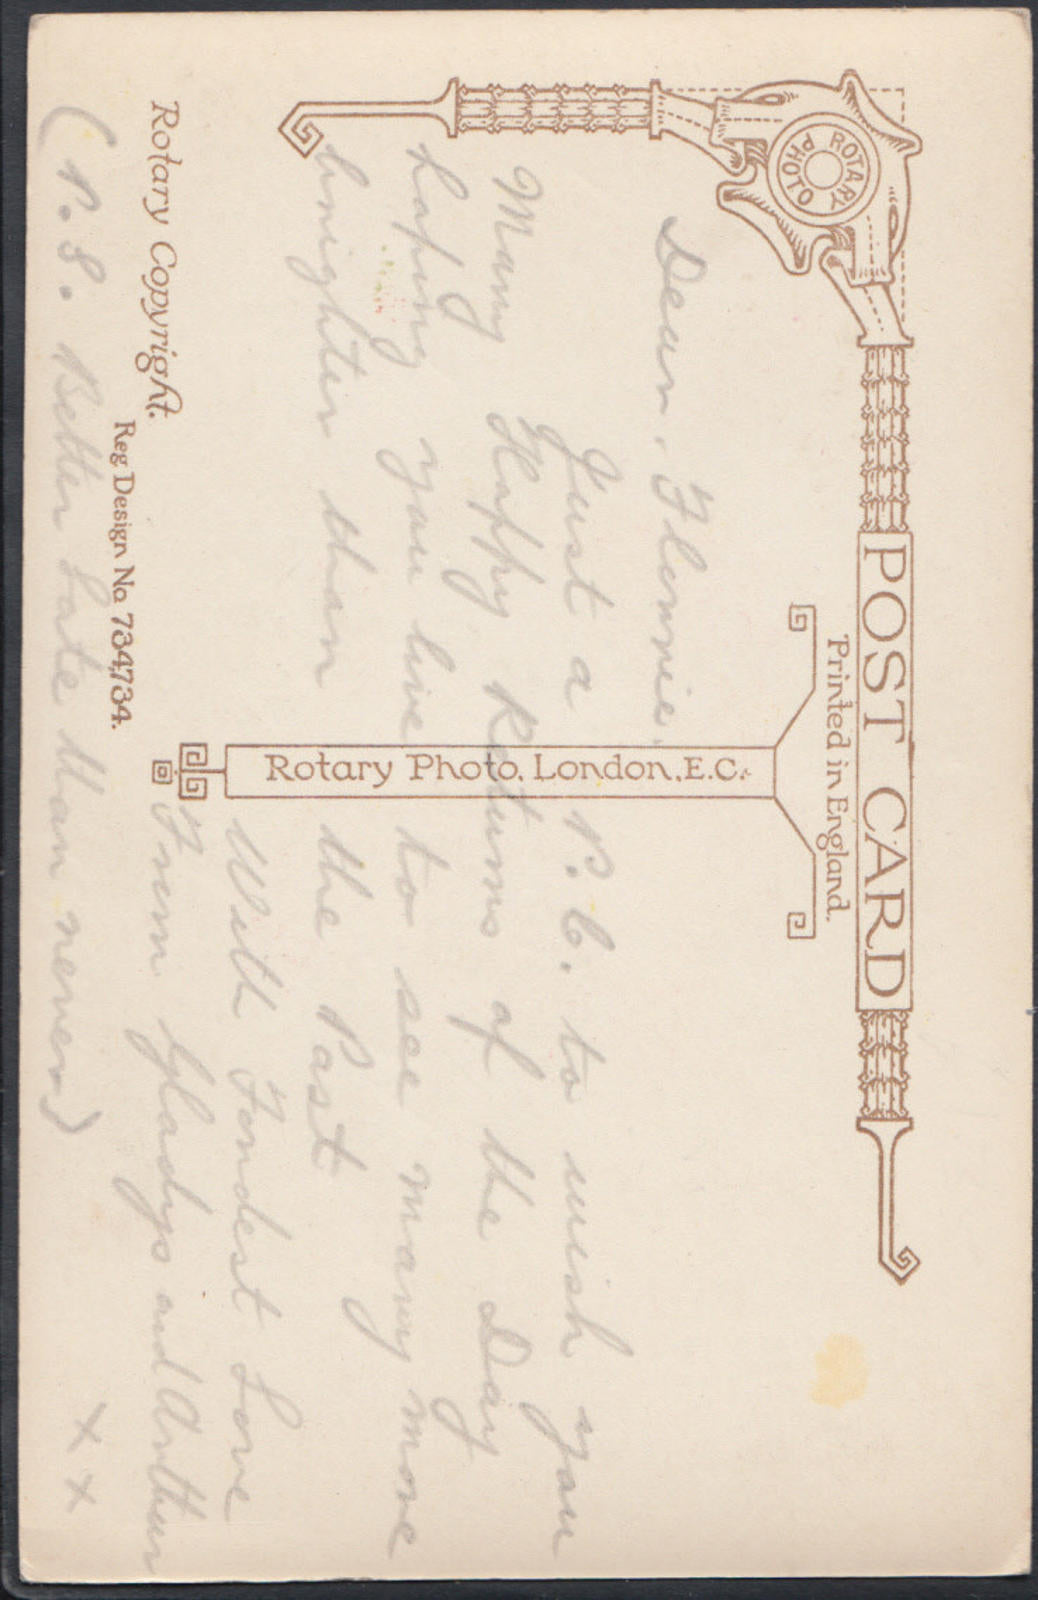 ROTARY PHOTO
POST CARD
Printed in England.
Rotary Photo, London, E.C.
Dear, Florrie.
Just a P.C. to wish you
Many Happy Returns of the Day
hoping you live to see many more
brighter than the Past
With Fondest Love
From Gladys and Arthur
Rotary Copyright.
Reg Design No. 734,734.
(P.S. Better Late than never) x x